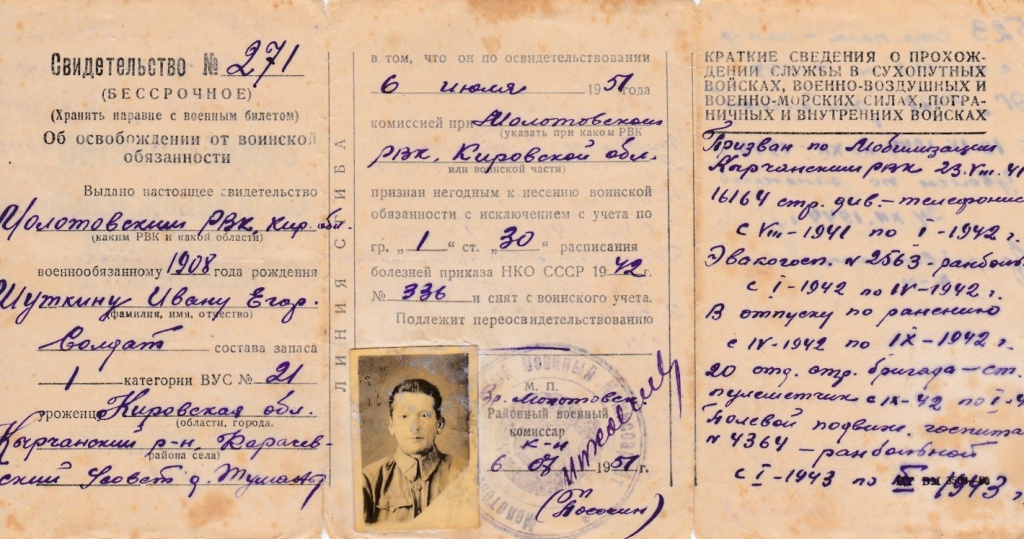 Свидетельство № 271
(БЕССРОЧНОЕ)
(Хранить наравне с военным билетом)
Об освобождении от воинской
обязанности
Выдано настоящее свидетельство
Молотовским РВК, Кир. обл.
(каким РВК и какой области)
военнообязанному 1908 года рождения
Шуткину Ивану Егор.
(фамилия, имя, отчество)
Солдат состава запаса
1 категории ВУС № 21
уроженец Кировская обл.
(области, города.
Кырчанский р-н
района села)
ский с/совет д.
ЛИНИЯ СГИБА
в том, что он по освидетельствовании
6 июля 1951 года
комиссией при Молотовском
(указать при каком РВК
РВК, Кировской обл.
или воинской части)
признан негодным к несению воинской
обязанности с исключением с учета по
гр. „1“ ст. „30“ расписания
болезней приказа НКО СССР 1942 г.
№ 336 и снят с воинского учета.
Подлежит переосвидетельствованию
М. П.
Вр. Молотовск
Районный военный
комиссар
к-н
6 07 1951 г.
КРАТКИЕ СВЕДЕНИЯ О ПРОХОЖ-
ДЕНИИ СЛУЖБЫ В СУХОПУТНЫХ
ВОЙСКАХ, ВОЕННО-ВОЗДУШНЫХ И
ВОЕННО-МОРСКИХ СИЛАХ, ПОГРА-
НИЧНЫХ И ВНУТРЕННИХ ВОЙСКАХ
Призван по Мобилизации
Кырчанским РВК 23.VIII.41
16164 стр. див.-телефонис
с VIII-1941 по I-1942 г.
Эвакогосп. N 2563-ранбольн
с I-1942 по IV-1942 г.
В отпуску по ранению
с IV-1942 по IX-1942 г.
20 отд. стр. бригада-ст.
пулеметчик с IX-42 по I-4
Полевой подвижн. госпита
N 4364-ранбольной
с I-1943 по III-1943 г.